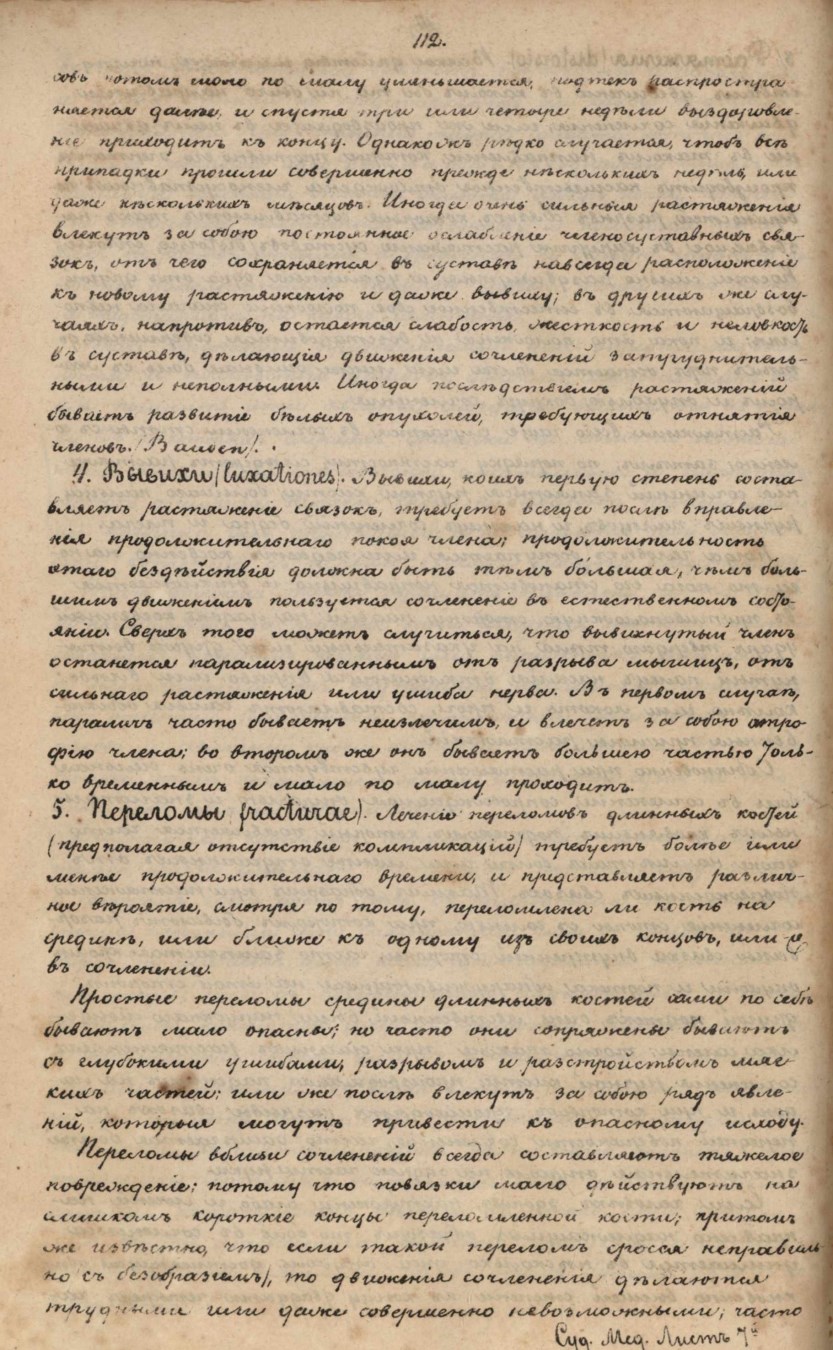 112.
совъ потомъ мало по малу уменьшается, подтекъ распростра
няется далѣе, и спустя три или четыре недѣли выздоровле-
ніе приходитъ къ концу. Однакожъ рѣдко случается, чтобъ всѣ
припадки прошли совершенно прежде нѣсколькихъ недѣль, или
даже нѣсколькихъ мѣсяцовъ. Иногда очень сильныя растяженія
влекутъ за собою постоянное ослабленіе членосуставныхъ свя-
зокъ, отъ чего сохраняется въ суставѣ навсегда расположеніе
къ новому растяженію и даже вывиху; въ другихъ же слу-
чаяхъ, напротивъ, остается слабость, жесткость и неловкость
въ суставѣ, дѣлающія движенія сочлененій затруднитель-
ными и неполными. Иногда послѣдствіемъ растяженій
бываетъ развитіе бѣлыхъ опухолей, требующихъ отнятія
членовъ.
4. Вывихи (luxationes). Вывихи, коихъ первую степень соста-
вляетъ растяженіе связокъ, требуетъ всегда послѣ вправле-
нія продолжительнаго покоя члена; продолжительность
этаго бездѣйствія должна быть тѣмъ бо́льшая, чѣмъ боль-
шимъ движеніемъ пользуется сочлененіе въ естественномъ состо-
яніи. Сверхъ того можетъ случиться, что вывихнутый членъ
останется парализированнымъ отъ разрыва мышицъ, отъ
сильнаго растяженія или ушиба нерва. Въ первомъ случаѣ,
параличъ часто бываетъ неизлечимъ, и влечетъ за собою атро-
фію члена; во второмъ же онъ бываетъ большею частью толь-
ко временнымъ и мало по малу проходитъ.
5. Переломы fracturae). Леченіе переломовъ длинныхъ костей
(предполагая отсутствіе компликацій) требуетъ болѣе или
менѣе продолжительнаго времени, и представляетъ различ-
ное вѣроятіе, смотря по тому, переломлена ли кость на
срединѣ, или ближе къ одному изъ своихъ концовъ, или
въ сочлененіи.
Простые переломы средины длинныхъ костей сами по себѣ
бываютъ мало опасны; но часто они сопряжены бываютъ
съ глубокими ушибами, разрывомъ и разстройствомъ мяг-
кихъ частей; или же послѣ влекутъ за собою рядъ явле-
ній, которыя могутъ привести къ опасному исходу.
Переломы вблизи сочлененій всегда составляютъ тяжелое
поврежденіе; потому что повязки мало дѣйствуютъ на
слишкомъ короткіе концы переломленной кости; притомъ
же извѣстно, что если такой переломъ сросся неправиль
но съ безобразіемъ), то движенія сочлененія дѣлаются
трудными или даже совершенно невозможными; часто
Суд. Мед. Листъ 7й